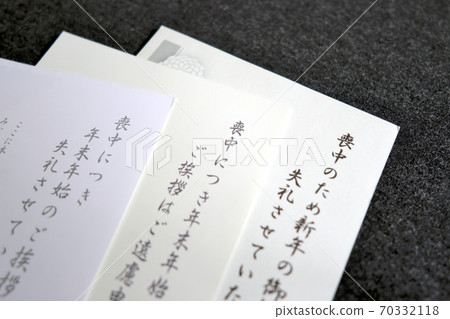 喪中のため新年の御
失礼させていた
喪中につき年末年始
ご挨拶はご遠慮申
喪中につき
年末年始のご挨拶
失礼させてい
PIXTA
70332118